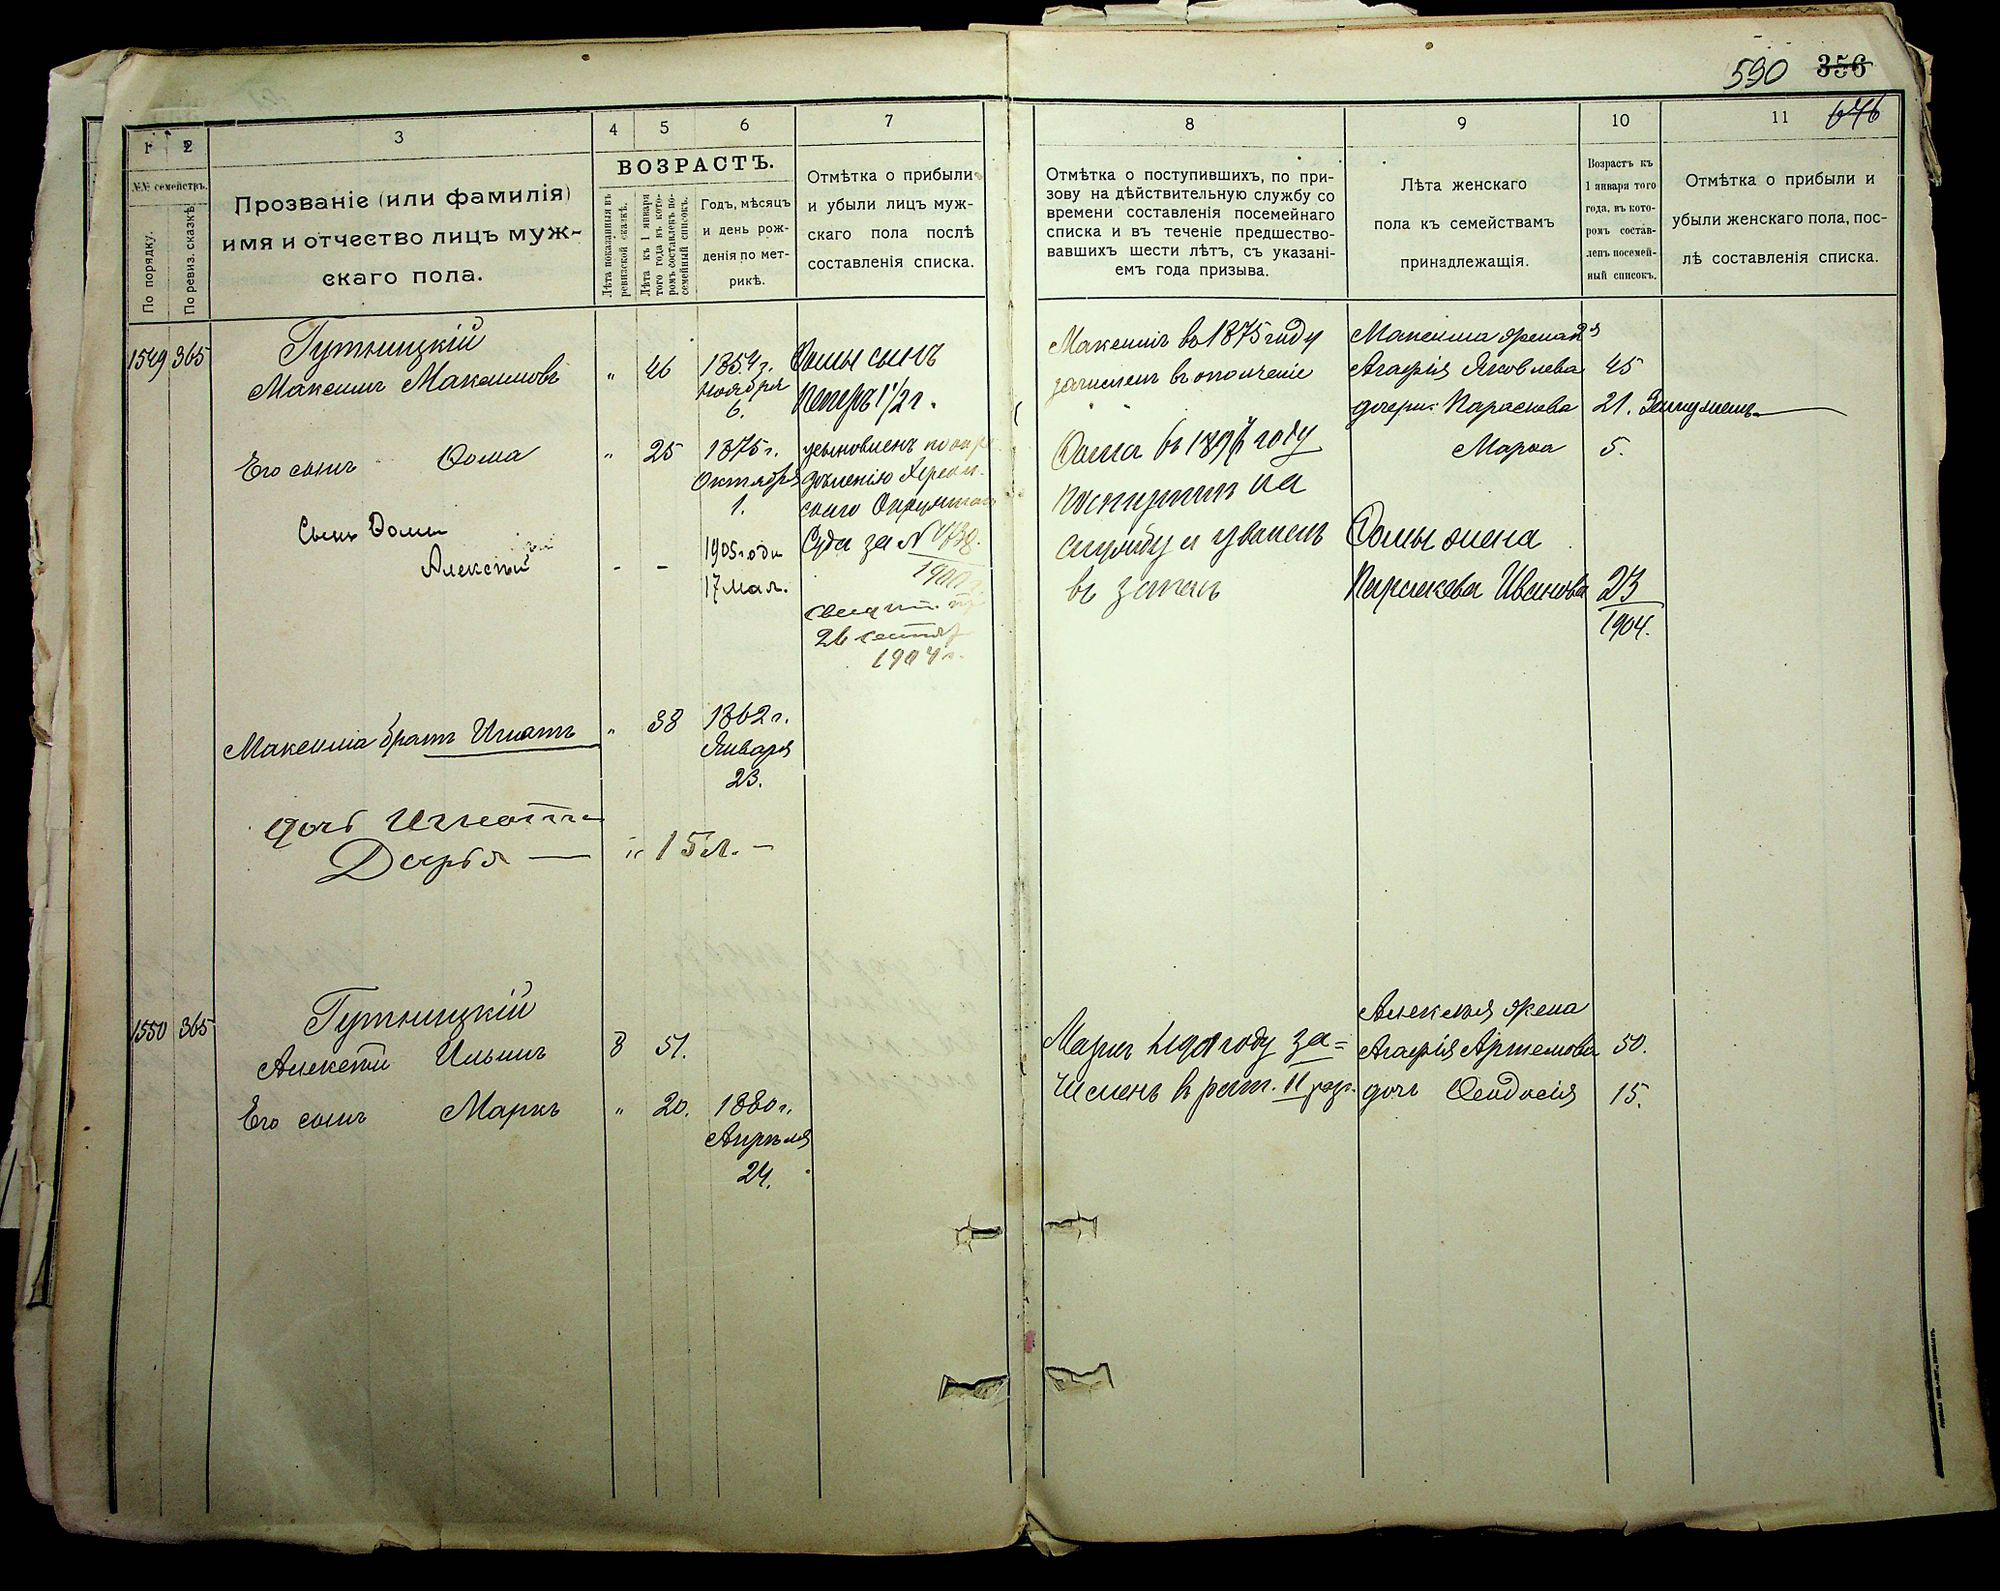 590 356
646
1 2 3 4 5 6 7
№№ семействъ.
По порядку.
По ревиз. сказкѣ.
Прозваніе (или фамилія)
имя и отчество лицъ муж-
скаго пола.
ВОЗРАСТЪ.
Лѣта показанныя въ
ревизской сказкѣ.
Лѣта къ 1 января
того года въ кото-
ромъ составленъ по-
семейный списокъ.
Годъ, мѣсяцъ
и день рож-
денія по мет-
рикѣ.
Отмѣтка о прибыли
и убыли лицъ муж-
скаго пола послѣ
составленія списка.
8 9 10 11
Отмѣтка о поступившихъ, по при-
зову на дѣйствительную службу со
времени составленія посемейнаго
списка и въ теченіе предшество-
вавшихъ шести лѣтъ, съ указані-
емъ года призыва.
Лѣта женскаго
пола къ семействамъ
принадлежащія.
Возрастъ къ
1 января того
года, въ кото-
ромъ состав-
ленъ посемей-
ный списокъ.
Отмѣтка о прибыли и
убыли женскаго пола, пос-
лѣ составленія списка.
1549 365 Гутницкій
Максимъ Максимовъ " 46 1854 г.
Ноября
6.
Ѳомы сынъ
Петръ 1 1/2 г.
усыновленъ по опре-
дѣленію Херсон-
скаго Окружнаго
Суда за №
1900
26 сентяб
1904 г.
Его сынъ Ѳома " 25 1875 г.
Октября
1.
Сынъ Ѳомы
Алексѣй - - 1905 года
17 мая.
Максима братъ Игнатъ " 38 1862 г.
Января
23.
дочь Игната
Дарья — " 15 л. -
Максимъ въ 1875 году
зачисленъ въ ополченіе
Ѳома въ 1897 году
поступилъ на
службу и уволенъ
въ запасъ
Максима жена
Агафія Яковлева 45
дочери: Параскева 21. Замужемъ
Марѳа 5.
Ѳомы жена
Параскева Иванова 23
1904.
1550 365 Гутницкій
Алексѣй Ильинъ 8 51.
Его сынъ Маркъ " 20. 1880 г.
Апрѣля
24.
Маркъ 1901 году за=
численъ в рат. II раз.
Алексѣя жена
Агафія Артемова 50.
дочь Ѳеодосія 15.